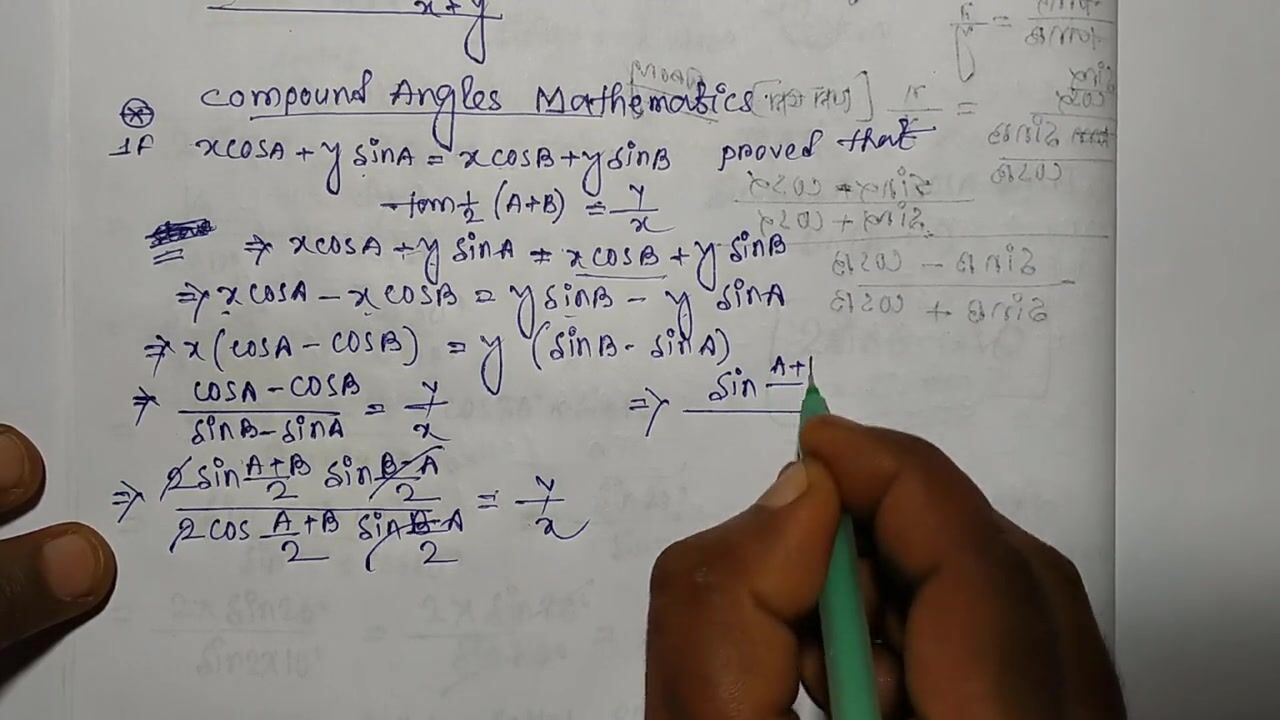 x+y
Compound Angles Mathematics
If xcosA + y sinA = xcosB + y sinB proved that
tan 1/2 (A+B) = y/x
⇒ xcosA + y sinA = xcosB + y sinB
⇒ xcosA - xcosB = y sinB - y sinA
⇒ x(cosA - cosB) = y (sinB - sinA)
⇒ cosA - cosB / sinB - sinA = y/x
⇒ 2 sin A+B/2 sin B-A/2 / 2 cos A+B/2 sin B-A/2 = y/x
⇒ sin A+